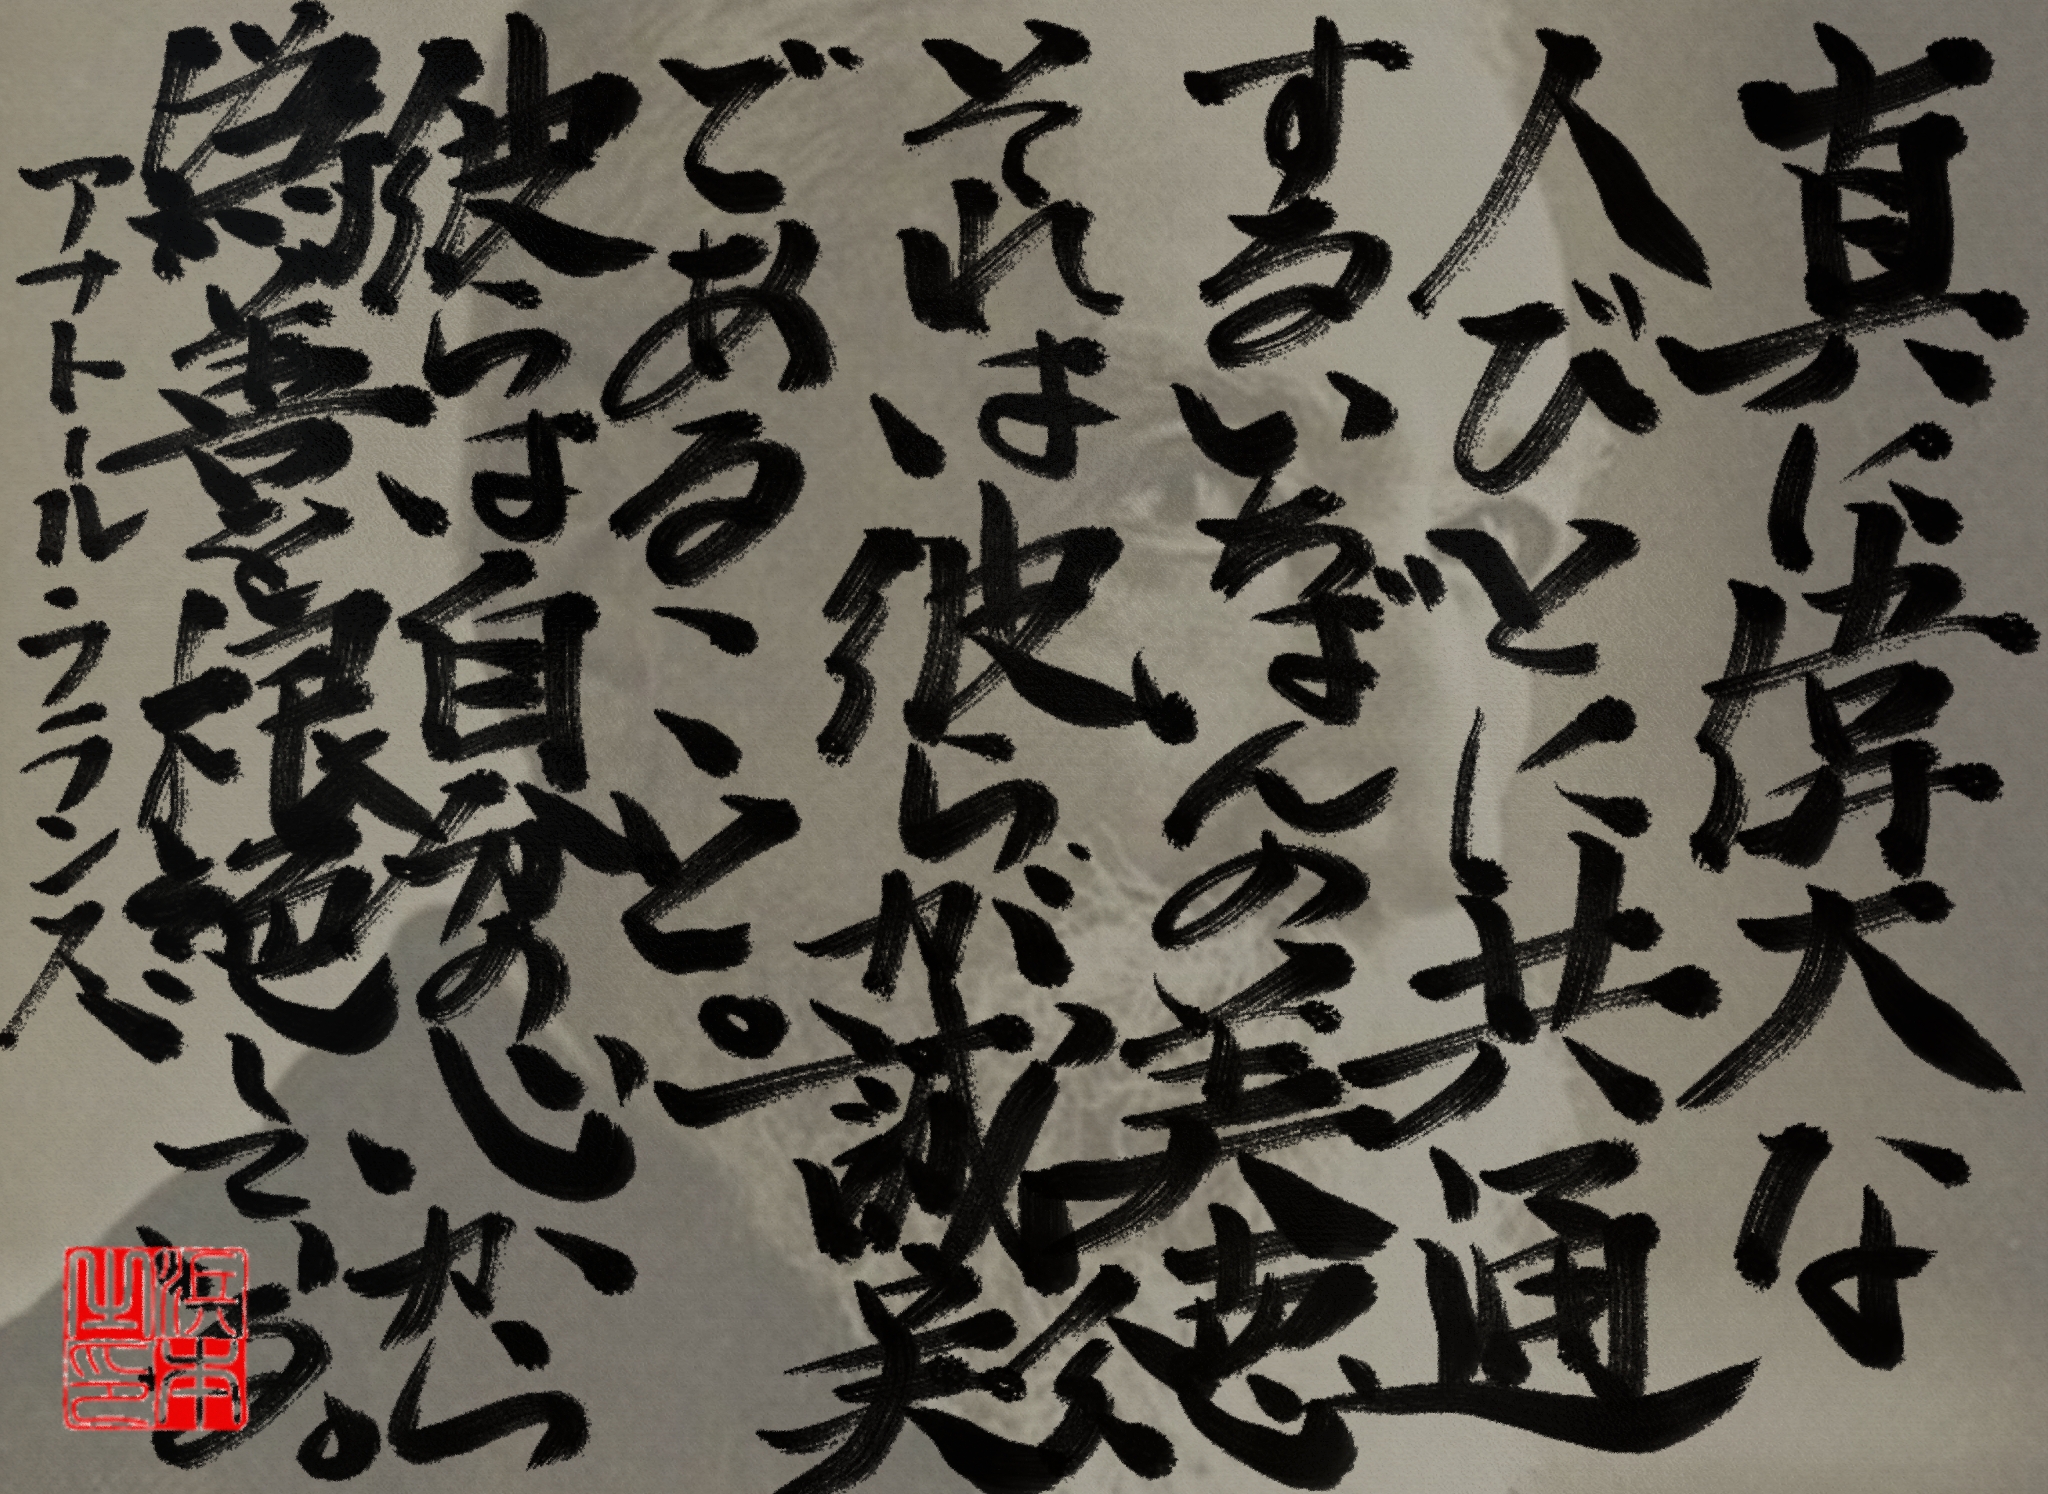 真に偉大な
人びとに共通
するいちばんの美徳
それは、彼らが誠実
である、、と。
彼らは、自分の心から
偽善を根絶している。
アナトール・フランス
浜本之印